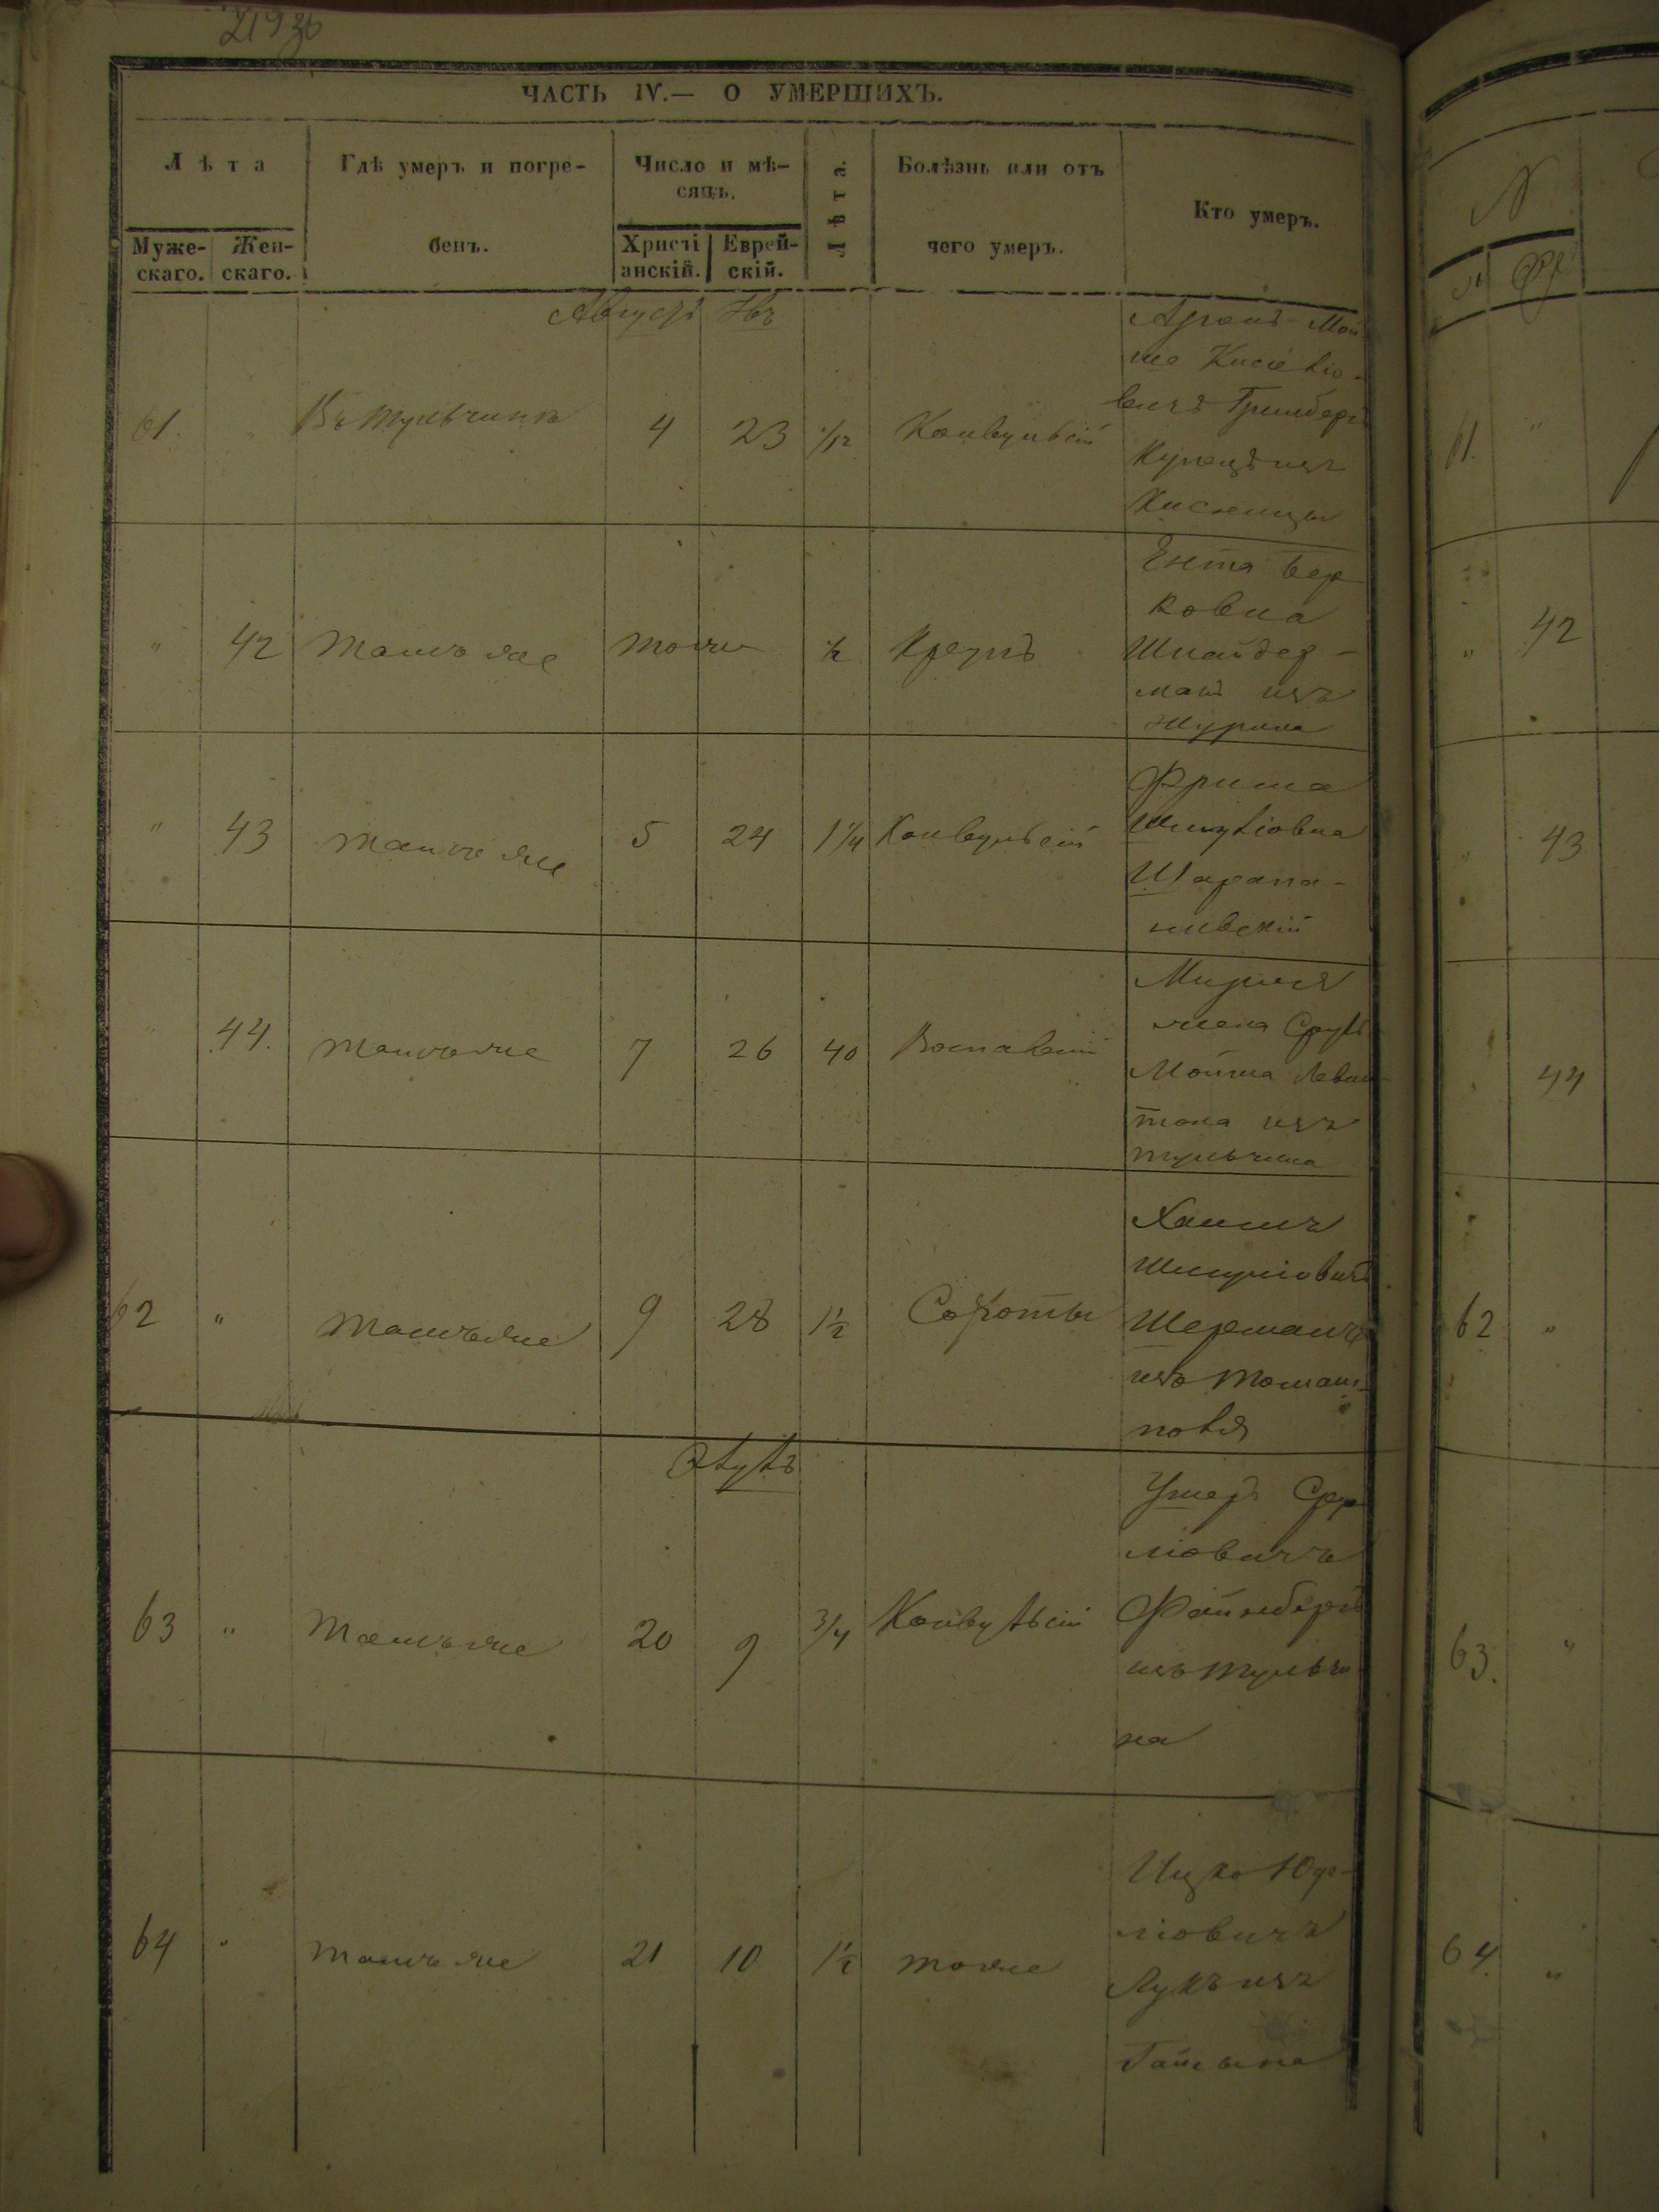 ЧАСТЬ IV.— О УМЕРШИХЪ.
Лѣта
Мужескаго. Женскаго.
Гдѣ умеръ и погребенъ.
Число и мѣсяцъ.
Христіанскій. Еврейскій.
Лѣта.
Болѣзнь или отъ чего умеръ.
Кто умеръ.
Августъ Авъ
61. " Въ Тульчинѣ 4 23 1/12 Конвульсій
Аронъ Мой
ше Кисіеліо-
вичъ Гринбергъ
Купецъ изъ
" 42 тамъ же тоже 1/2 Крупъ
Ента Бер
ковна
Шнайдер-
манъ изъ
Шурина
" 43 тамъ же 5 24 1 1/4 Конвульсій
Фрима
Шмулiовна
Шарапа-
нивскій
44. тамъ же 7 26 40
жена Сруль
Мойша Левин
тона изъ
Тульчина
62 " тамъ же 9 28 1 1/2 Сухоты
Хаимъ
Шмуліовичъ
Шерманъ
изъ Томаш-
поля
Элулъ
63 " тамъ же 20 9 3/4 Конвульсій
Умеръ Сру
ліовичъ
Файнбергъ
изъ Тульчи
на
64 " тамъ же 21 10 1 1/2 тоже
Ицко Юд-
ліовичъ
Лукъ изъ
Гайсына
61. "
" 42
" 43
" 44
62 "
63. "
64. "